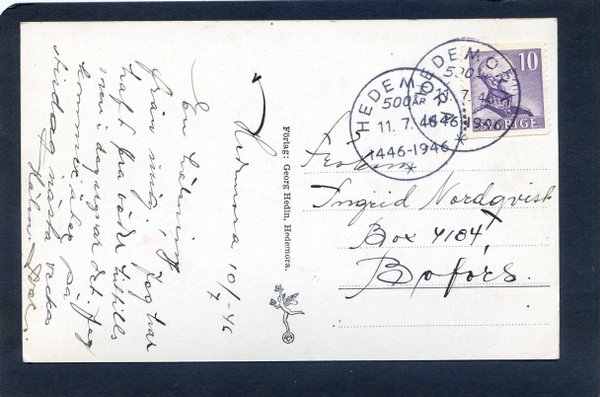 Hedemora 10/7-46
En hälsning
från mig. Jag har
haft bra väder hittills
men i dag regnar det. Jag
kommer åter på
lördag nästa vecka
Förlag: Georg Hedin, Hedemora.
HEDEMORA
500 ÅR
11. 7. 46
1446-1946
HEDEMORA
500 ÅR
11. 7. 46
1446-1946
10
SVERIGE
Fröken
Ingrid Nordqvist
Box 4184,
Bofors.